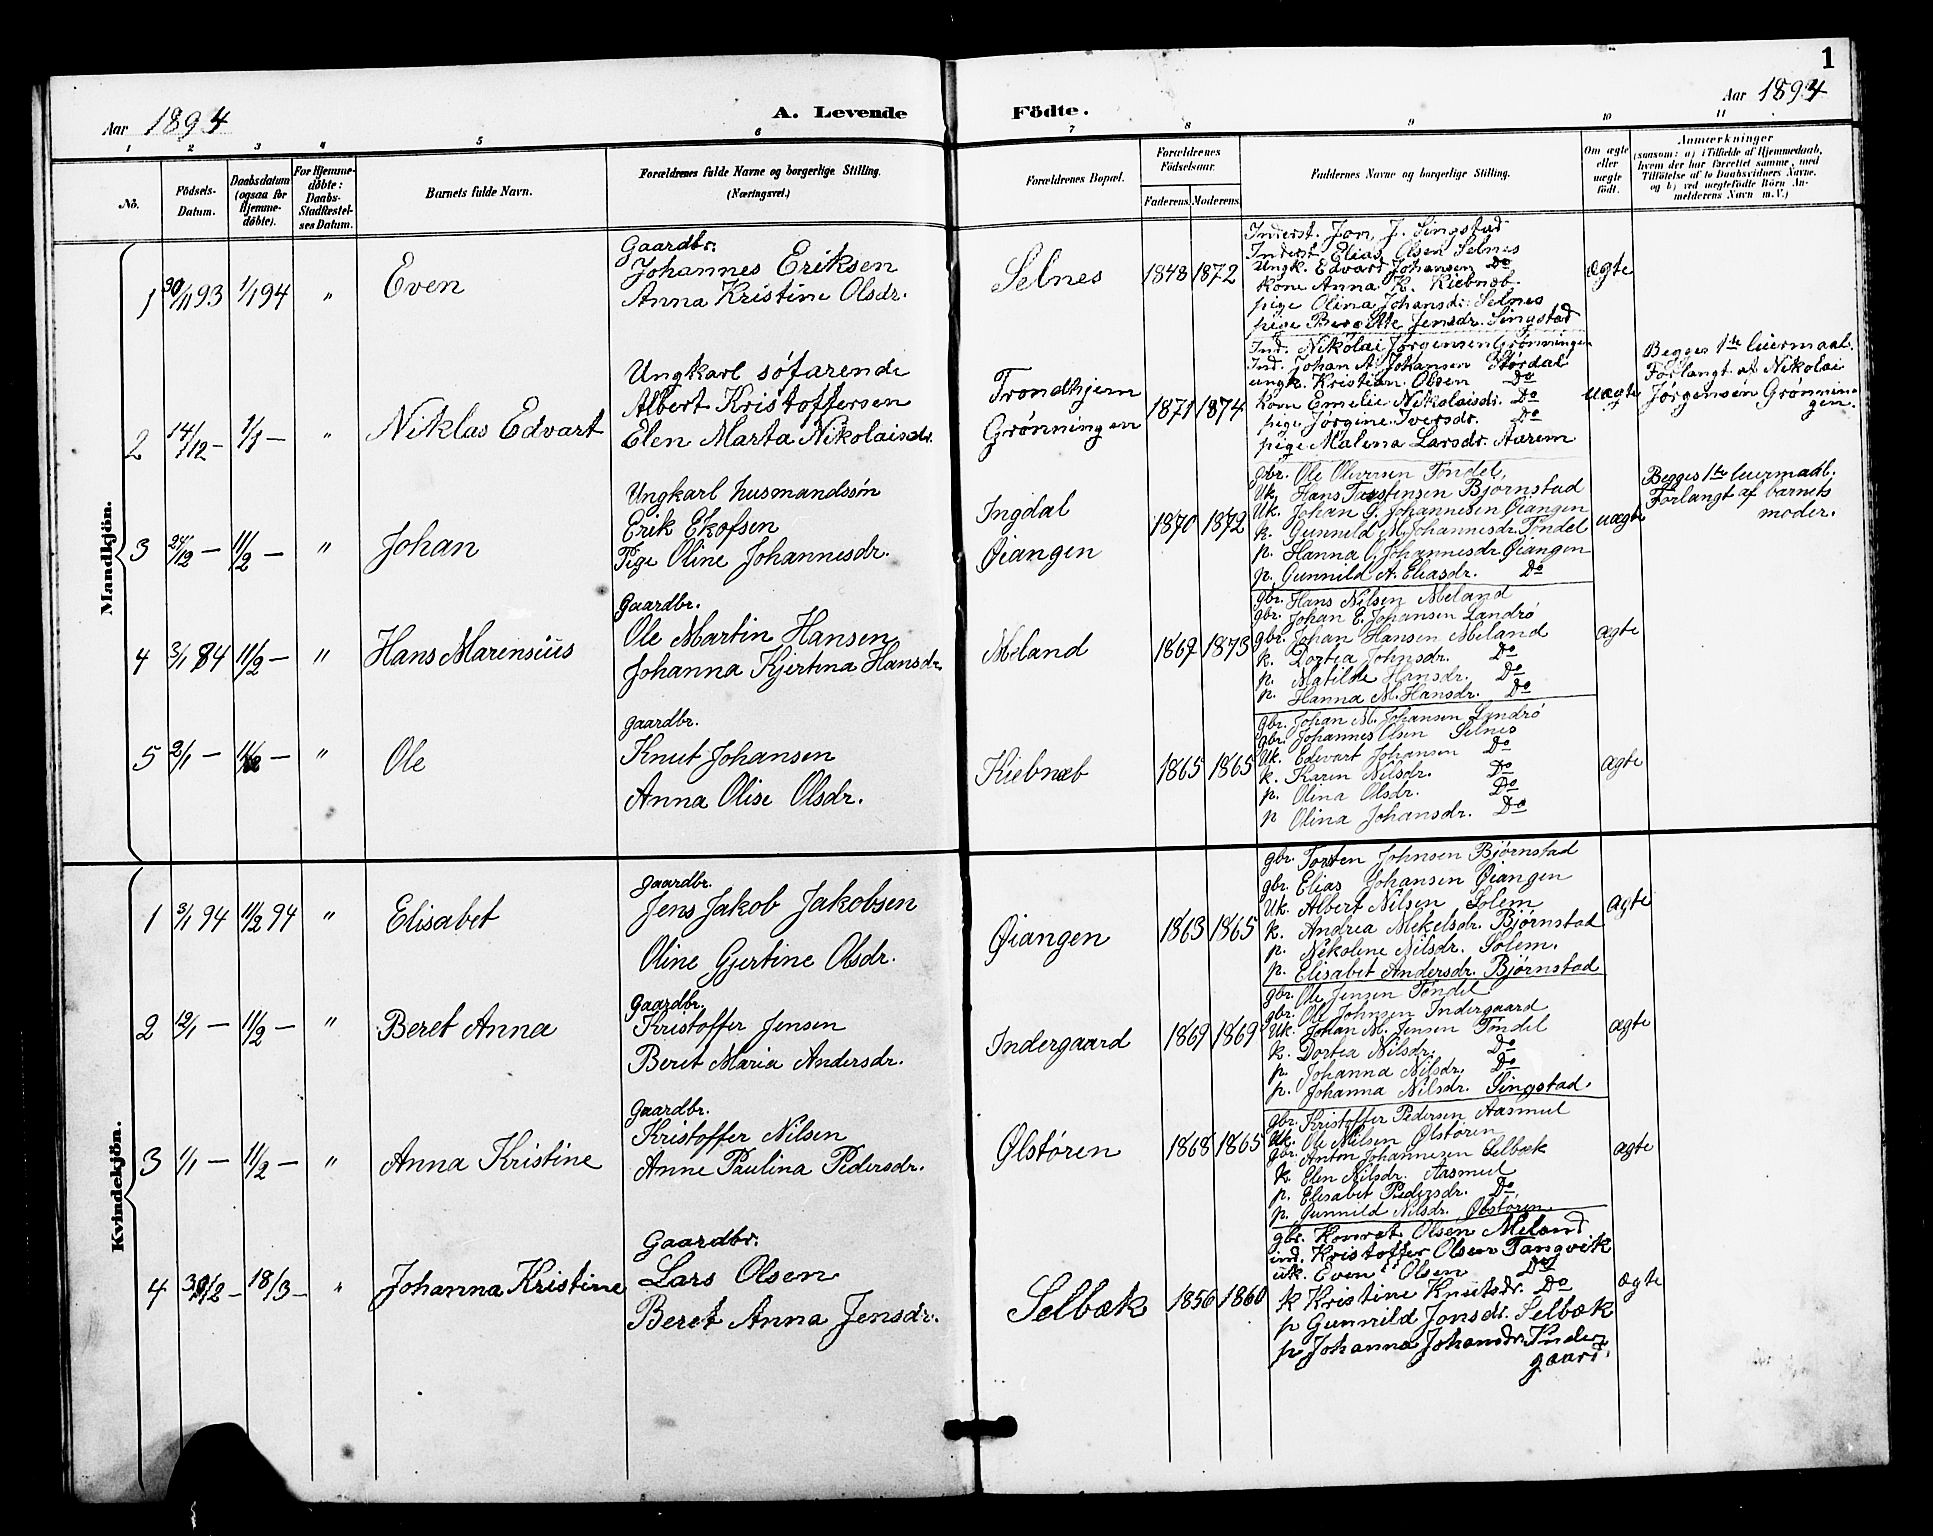 1
Aar 1894
A. Levende Födte.
Aar 1894
1 2 3 4 5 6 7 8 9 10 11
No.
Födsels-Datum.
Daabsdatum (ogsaa for Hjemme-döbte).
For Hjemme-döbte: Daabs-Stadfæstel-ses Datum.
Barnets fulde Navn.
Forældrenes fulde Navne og borgerlige Stilling. (Næringsvei.)
Forældrenes Bopæl.
Forældrenes Födselsaar.
Faderens. Moderens.
Faddernes Navne og borgerlige Stilling.
Om ægte eller uægte födt.
Anmærkninger
(saasom: a) i Tilfælde af Hjemmedaab,
hvem der har forrettet samme, med
Tilföielse af to Daabsvidners Navne.
og b) ved uægtefödte Börn An-
melderens Navn m.V.)
Mandkjön.
1 30/11 93 1/1 94 " Even
Gaardbr.
Johannes Eriksen
Anna Kristine Olsdr.
Selnes 1848 1872
Inderst. Jon J. Singstad
Inderst. Elias Olsen Selnes
Ungk. Edvard Johansen Do
kone Anna K. Kiebnæb.
pige Olina Johansdr. Selnes
pige Beregitte Jensdr. Singstad
ægte
2 14/12 – 1/1 – " Niklas Edvart
Ungkarl søfarende
Albert Kristoffersen
Elen Marta Nikolaisdr.
Trondhjem
Grønningen
1871 1874
Ind. Nikolai Jørgensen Grønningen
Ind. Johan A. Johansen Størdal
ungk. Kristian Olsen Do
Kone Emelie Nikolaisdr. Do
pige Jørgine Iversdr. Do
pige Malena Larsdr. Aarem
uægte
Begges 1ste leiermaal.
Forlangt at Nikolai
Jørgensen Grønnin-
gen.
3 24/12 – 11/2 – " Johan
Ungkarl husmandssøn
Erik Ekofsen
Pige Oline Johannesdr.
Ingdal
Øiangen
1870 1872
gbr. Ole Oluvsen Tøndel
Uk. Hans Tarstensen Bjørnstad
Uk. Johan G. Johannesen Øiangen
k. Gunnild M. Johannesdr. Tøndel
p. Hanna O. Johannesdr. Øiangen
p. Gunnild A. Eliasdr. Do
uægte
Begges 1ste leiermaal.
Forlangt af barnets
moder.
4 3/1 84 11/2 – " Hans Marensius
Gaardbr.
Ole Martin Hansen
Johanna Kjertina Hansdr.
Meland 1867 1873
gbr. Hans Nilsen Meland
gbr. Johan E. Johansen Landrø
gbr. Johan Hansen Meland
k. Dortea Johnsdr. Do
p. Matilde Hansdr. Do
p. Hanna M. Hansdr. Do
ægte
5 2/1 – 11/2 – " Ole
Gaardbr.
Knut Johansen
Anna Olise Olsdr.
Kiebnæb 1865 1865
gbr. Johan M. Johansen Lyndrø
gbr. Johannes Olsen Selnes
Uk. Edevart Johansen Do
k. Karen Nilsdr. Do
p. Olina Olsdr. Do
p Olina Johansdr. Do
ægte
Kvindekjön.
1 3/1 94 11/2 94 " Elisabet
Gaardbr.
Jens Jakob Jakobsen
Oline Gjertine Olsdr.
Øiangen 1863 1865
gbr. Torsten Johnsen Bjørnstad
gbr. Elias Johansen Øiangen
Uk. Albert Nilsen Solem
k. Andrea Mekelsdr. Bjørnstad
p. Nikoline Nilsdr. Solem.
p. Elisabet Andersdr. Bjørnstad
ægte
2 12/1 – 11/2 – " Beret Anna
Gaardbr.
Kristoffer Jensen
Beret Maria Andersdr.
Indergaard 1869 1869
gbr. Ole Jensen Tøndel
gbr. Ole Johnsen Indergaard
Uk. Johan M. Jensen Tøndel
k. Dortea Nilsdr. Do
p. Johanna Nilsdr. Do
p. Johanna Nilsdr. Singstad.
ægte
3 1/1 – 11/2 – " Anna Kristine
Gaardbr.
Kristoffer Nilsen
Anne Paulina Pedersdr.
Ølstøren 1868 1865
gbr. Kristoffer Pedersen Aasmul
Uk. Ole Nilsen Ølstøren
gbr. Anton Johannesen Selbæk
k. Elen Nilsdr. Aasmul
p. Elisabet Pedersdr. Do
p. Gunnild Nilsdr. Ølstøren
ægte
4 18/3 – " Johanna Kristine
Gaardbr.
Lars Olsen
Beret Anna Jensdr.
Selbæk 1856 1860
gbr. Konrat Olsen Meland
ind. Kristoffer Olsen Tangvik
uk. Even Olsen Do
k Kristine Knutsdr. Do
p Gunnild Jonsdr. Selbæk
p Johanna Johansdr. Inder
gaard.
ægte